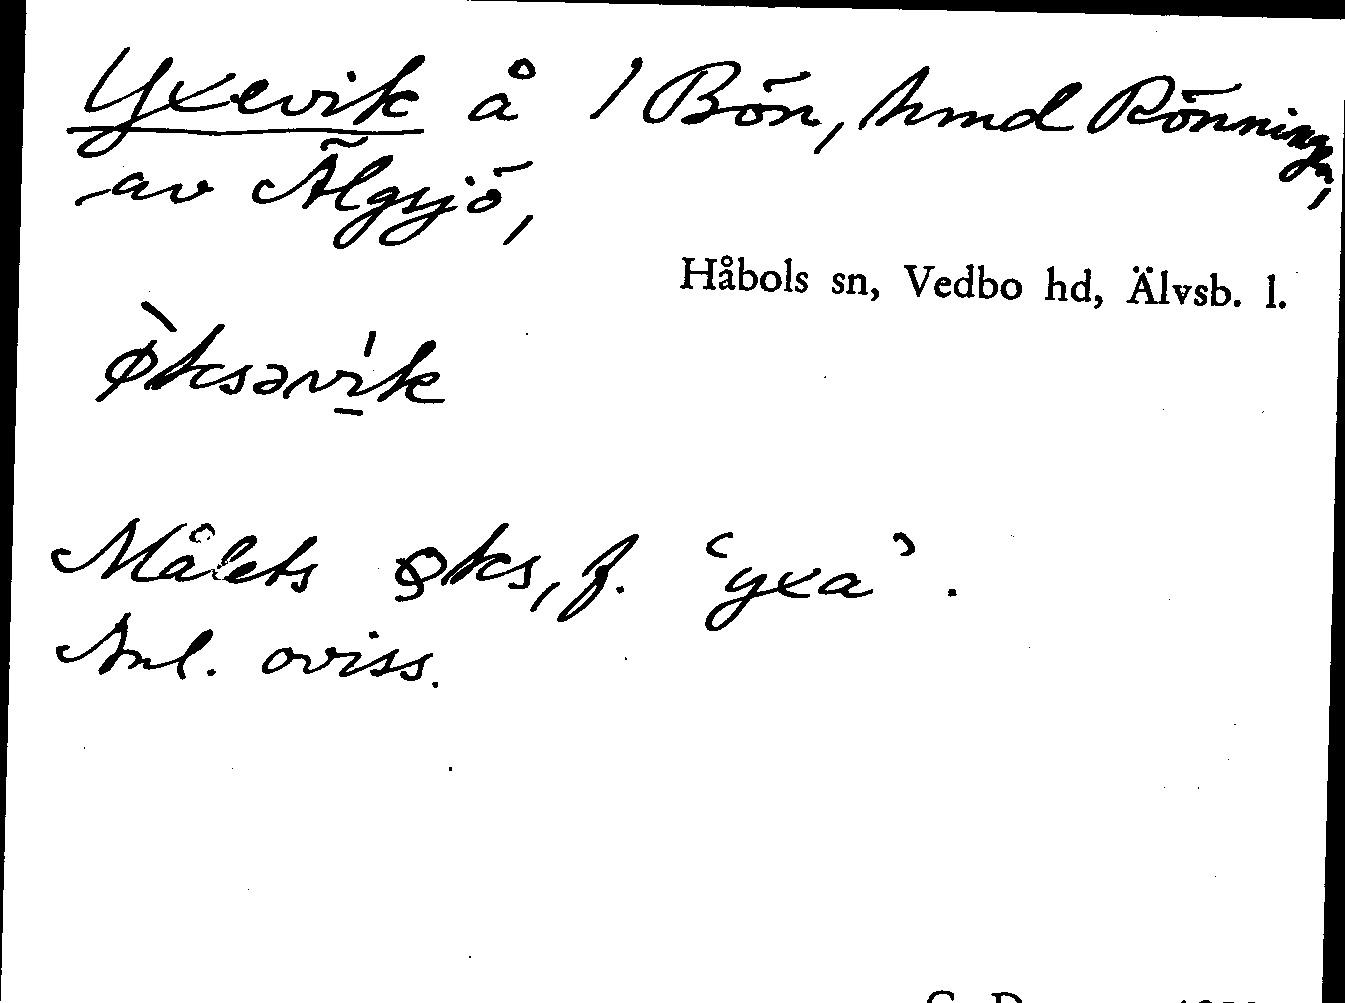 Yxevik å 1 Bön, hmd Rönningen,
av Älgsjö,
Håbols sn, Vedbo hd, Älvsb. l.
ø̀ksəvi̱k
Målets øks, f. ‘yxa’.
Anl. oviss.